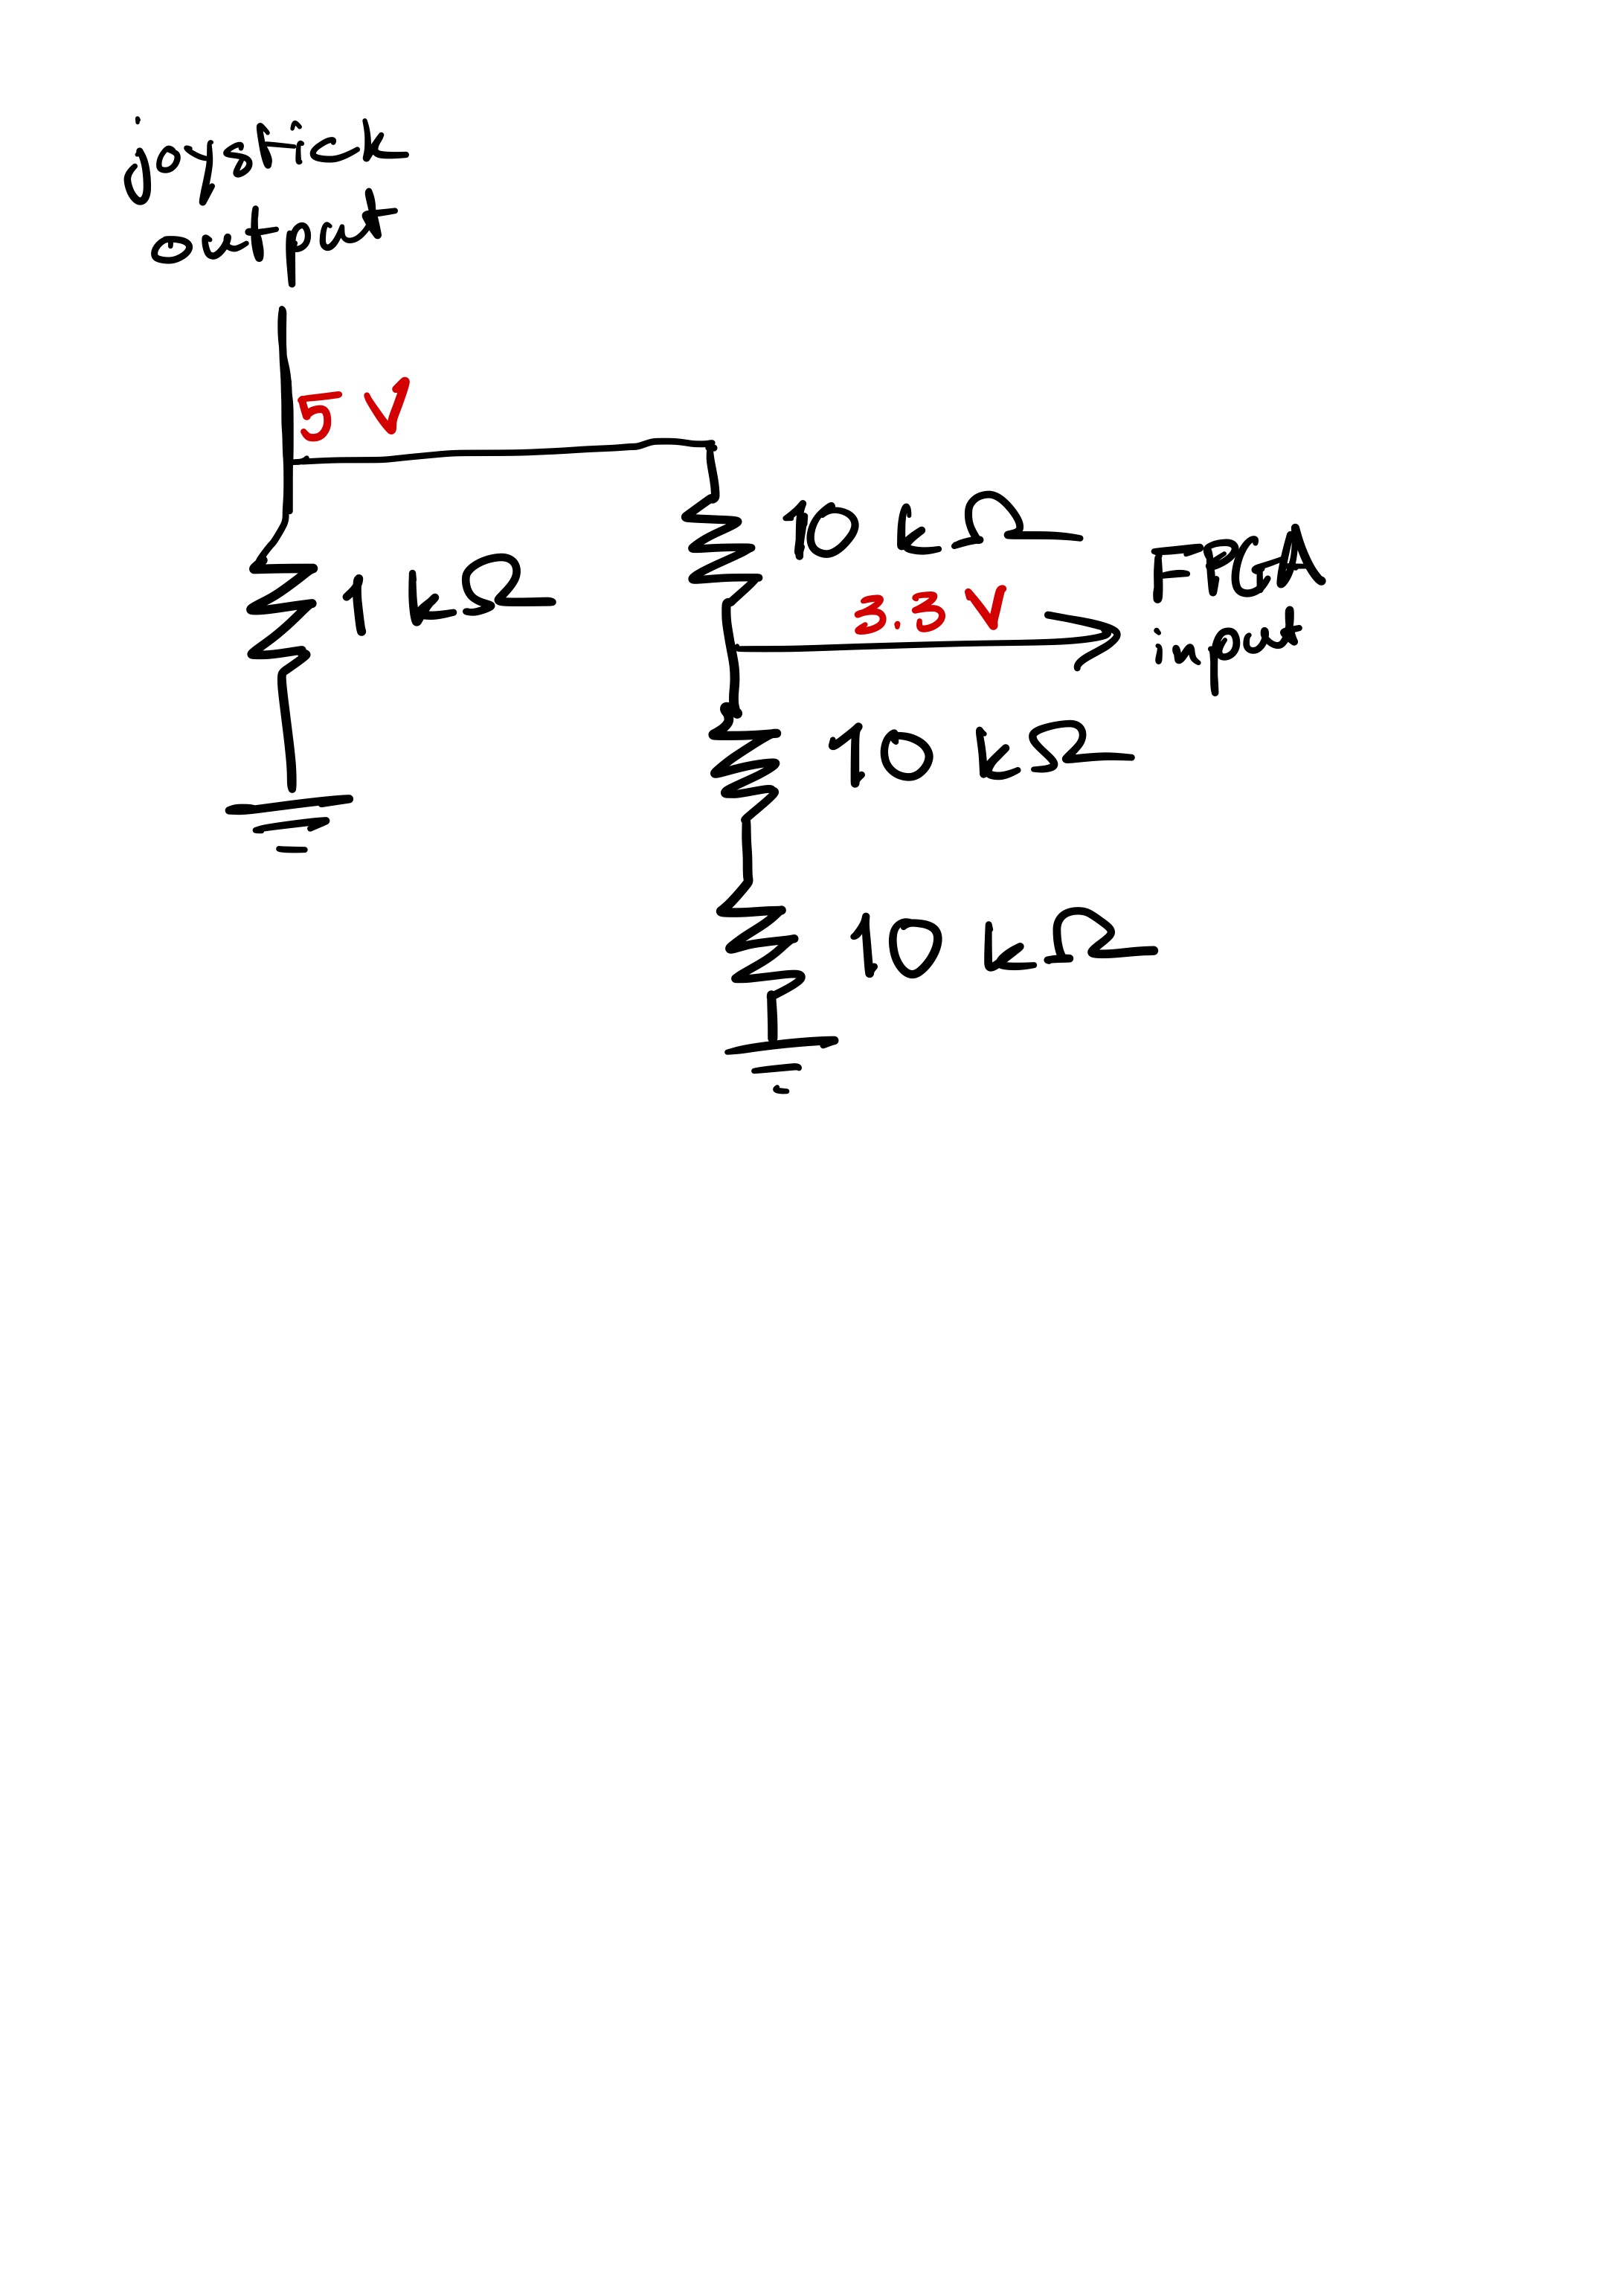 joystick
output
5 V
10 kΩ
1 kΩ
3.3 V
FPGA
input
10 kΩ
10 kΩ